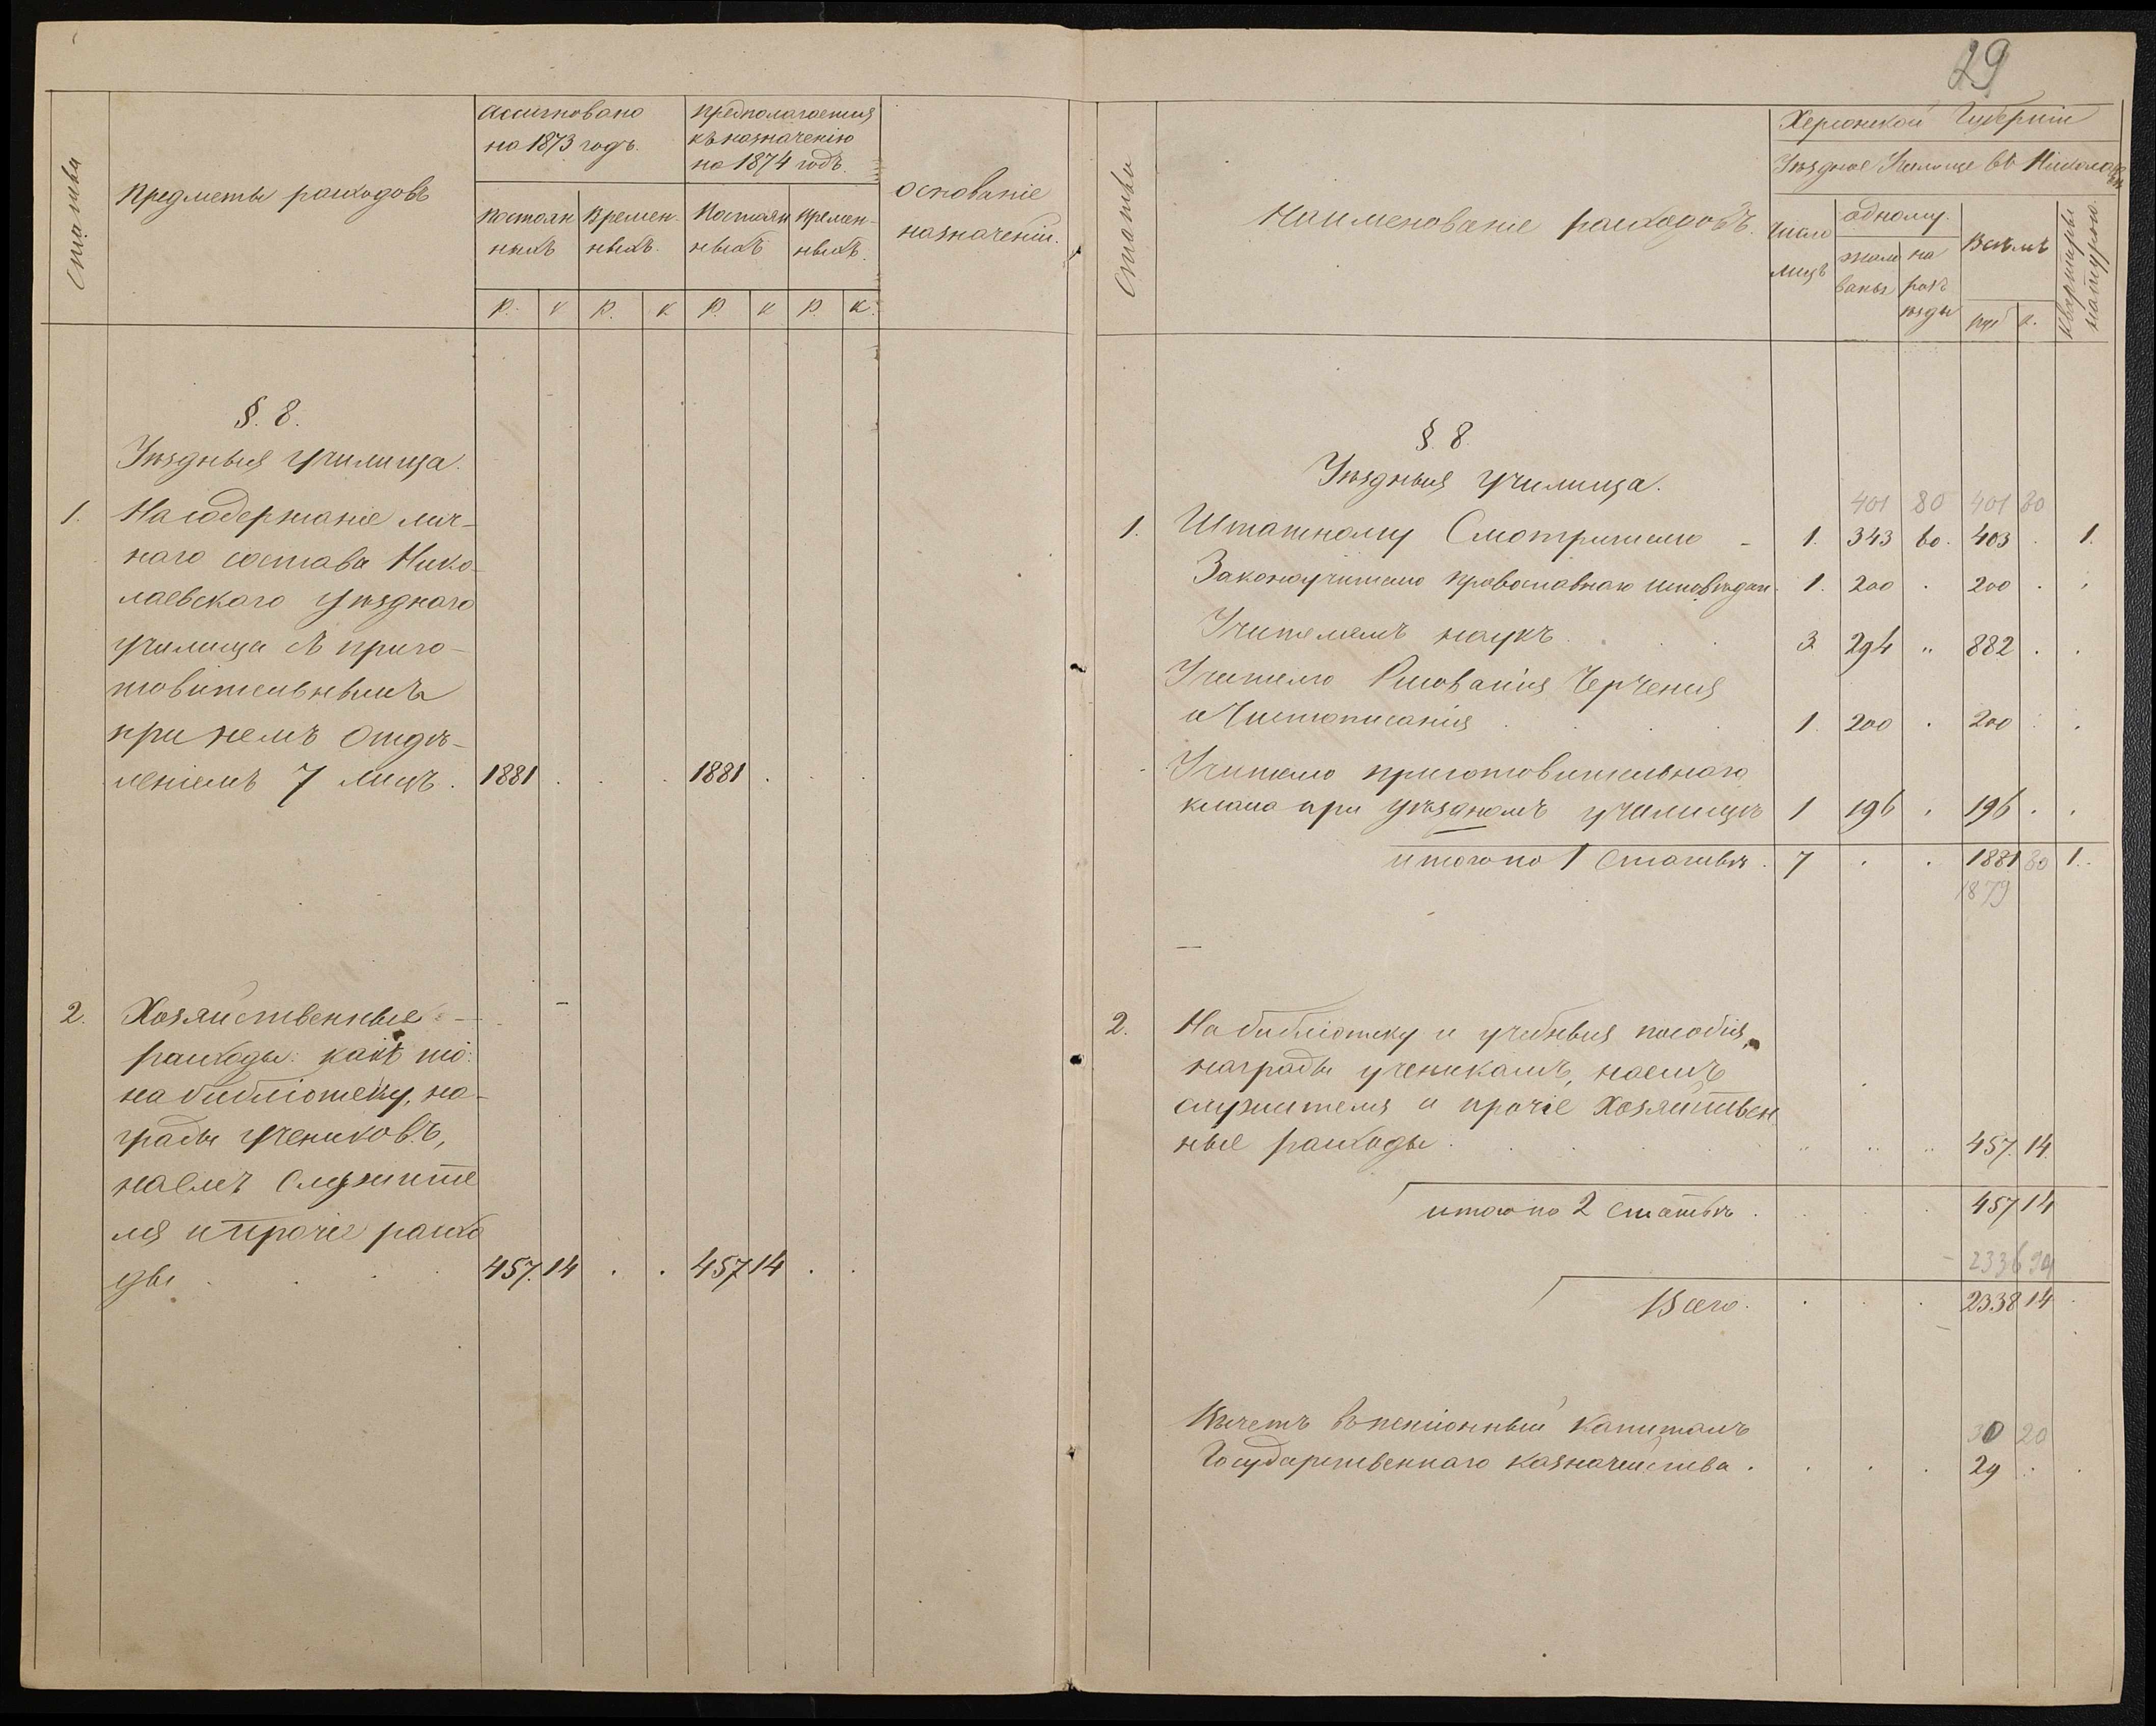 29
Статьи
Предметы расходовъ
Ассигновано
на 1873 годъ.
Предполагается
къ назначенію
на 1874 годъ.
Основаніе
назначенія.
Постоян
ныхъ
Времен-
ныхъ.
Постоян
ныхъ
Времен-
ныхъ.
Р. К Р. К Р. К Р. К.
§. 8.
Уѣздныя училища.
1. На содержаніе лич-
наго состава Нико-
лаевскаго уѣзднаго
училища съ приго-
товительнымъ
при немъ отдѣ-
леніемъ 7 лицъ. 1881 . . . 1881 . . .
2. Хозяйственные
расходы: какъ то:
на библіотеку, на-
грады учениковъ,
наемъ служите
ля и прочіе расхо
ды . . . 457. 14 . . 457 14 . .
Статьи
Наименованіе расходовъ.
Херсонской Губерніи
Уѣздное Училище въ Николаевѣ
Число
лицъ
одному.
жало
ванья
на
разъ
ѣзды
Всѣмъ
руб к.
Квартиры
натурою.
§. 8
Уѣздныя училища.
401 80 401 80
1. Штатному Смотрителю - 1. 343 60. 403 . 1.
Законоучителю Православнаго исповѣдан. 1. 200 . 200 . .
Учителямъ наукъ . . 3 294 " 882 . .
Учителю Рисованія Черченія
и Чистописанія . . . 1. 200 . 200 . .
Учителю приготовительнаго
класса при уѣздномъ училищѣ 1 196 . 196 . .
итого по 1 Статьѣ . 7 . . 1881 80 1.
1879
2. На библіотеку и учебныя пособія,
награды ученикамъ, наемъ
служителя и прочіе Хозяйствен
ные расходы . . . . 457. 14.
итого по 2 статьѣ . . . . 457 14
2336 94
Всего. . . . 2338 14
Вычетъ въ пенсіонный Капиталъ
30 20
Государственнаго казначейства . . . . 29 . .